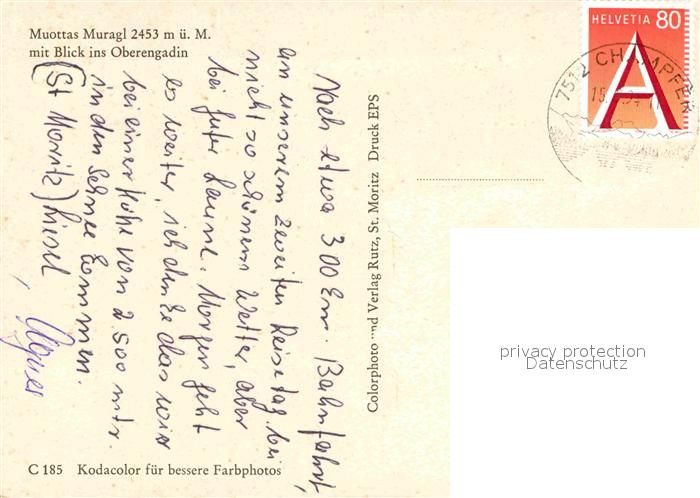 Muottas Muragl 2453 m ü. M.
mit Blick ins Oberengadin
Nach etwa 300 km. Bahnfahrt,
an unserem zweiten Reisetag bei
nicht so schönem Wetter, aber
bei guter Laune. Morgen geht
es weiter, ich denke das wir
bei einer Höhe von 2.500 mtr.
in den Schnee kommen.
(St Moritz) Liesel
Agnes
C 185 Kodacolor für bessere Farbphotos
Colorphoto und Verlag Rutz, St. Moritz Druck EPS
HELVETIA 80
A
7512 CHAMPFÈR
privacy protection
Datenschutz